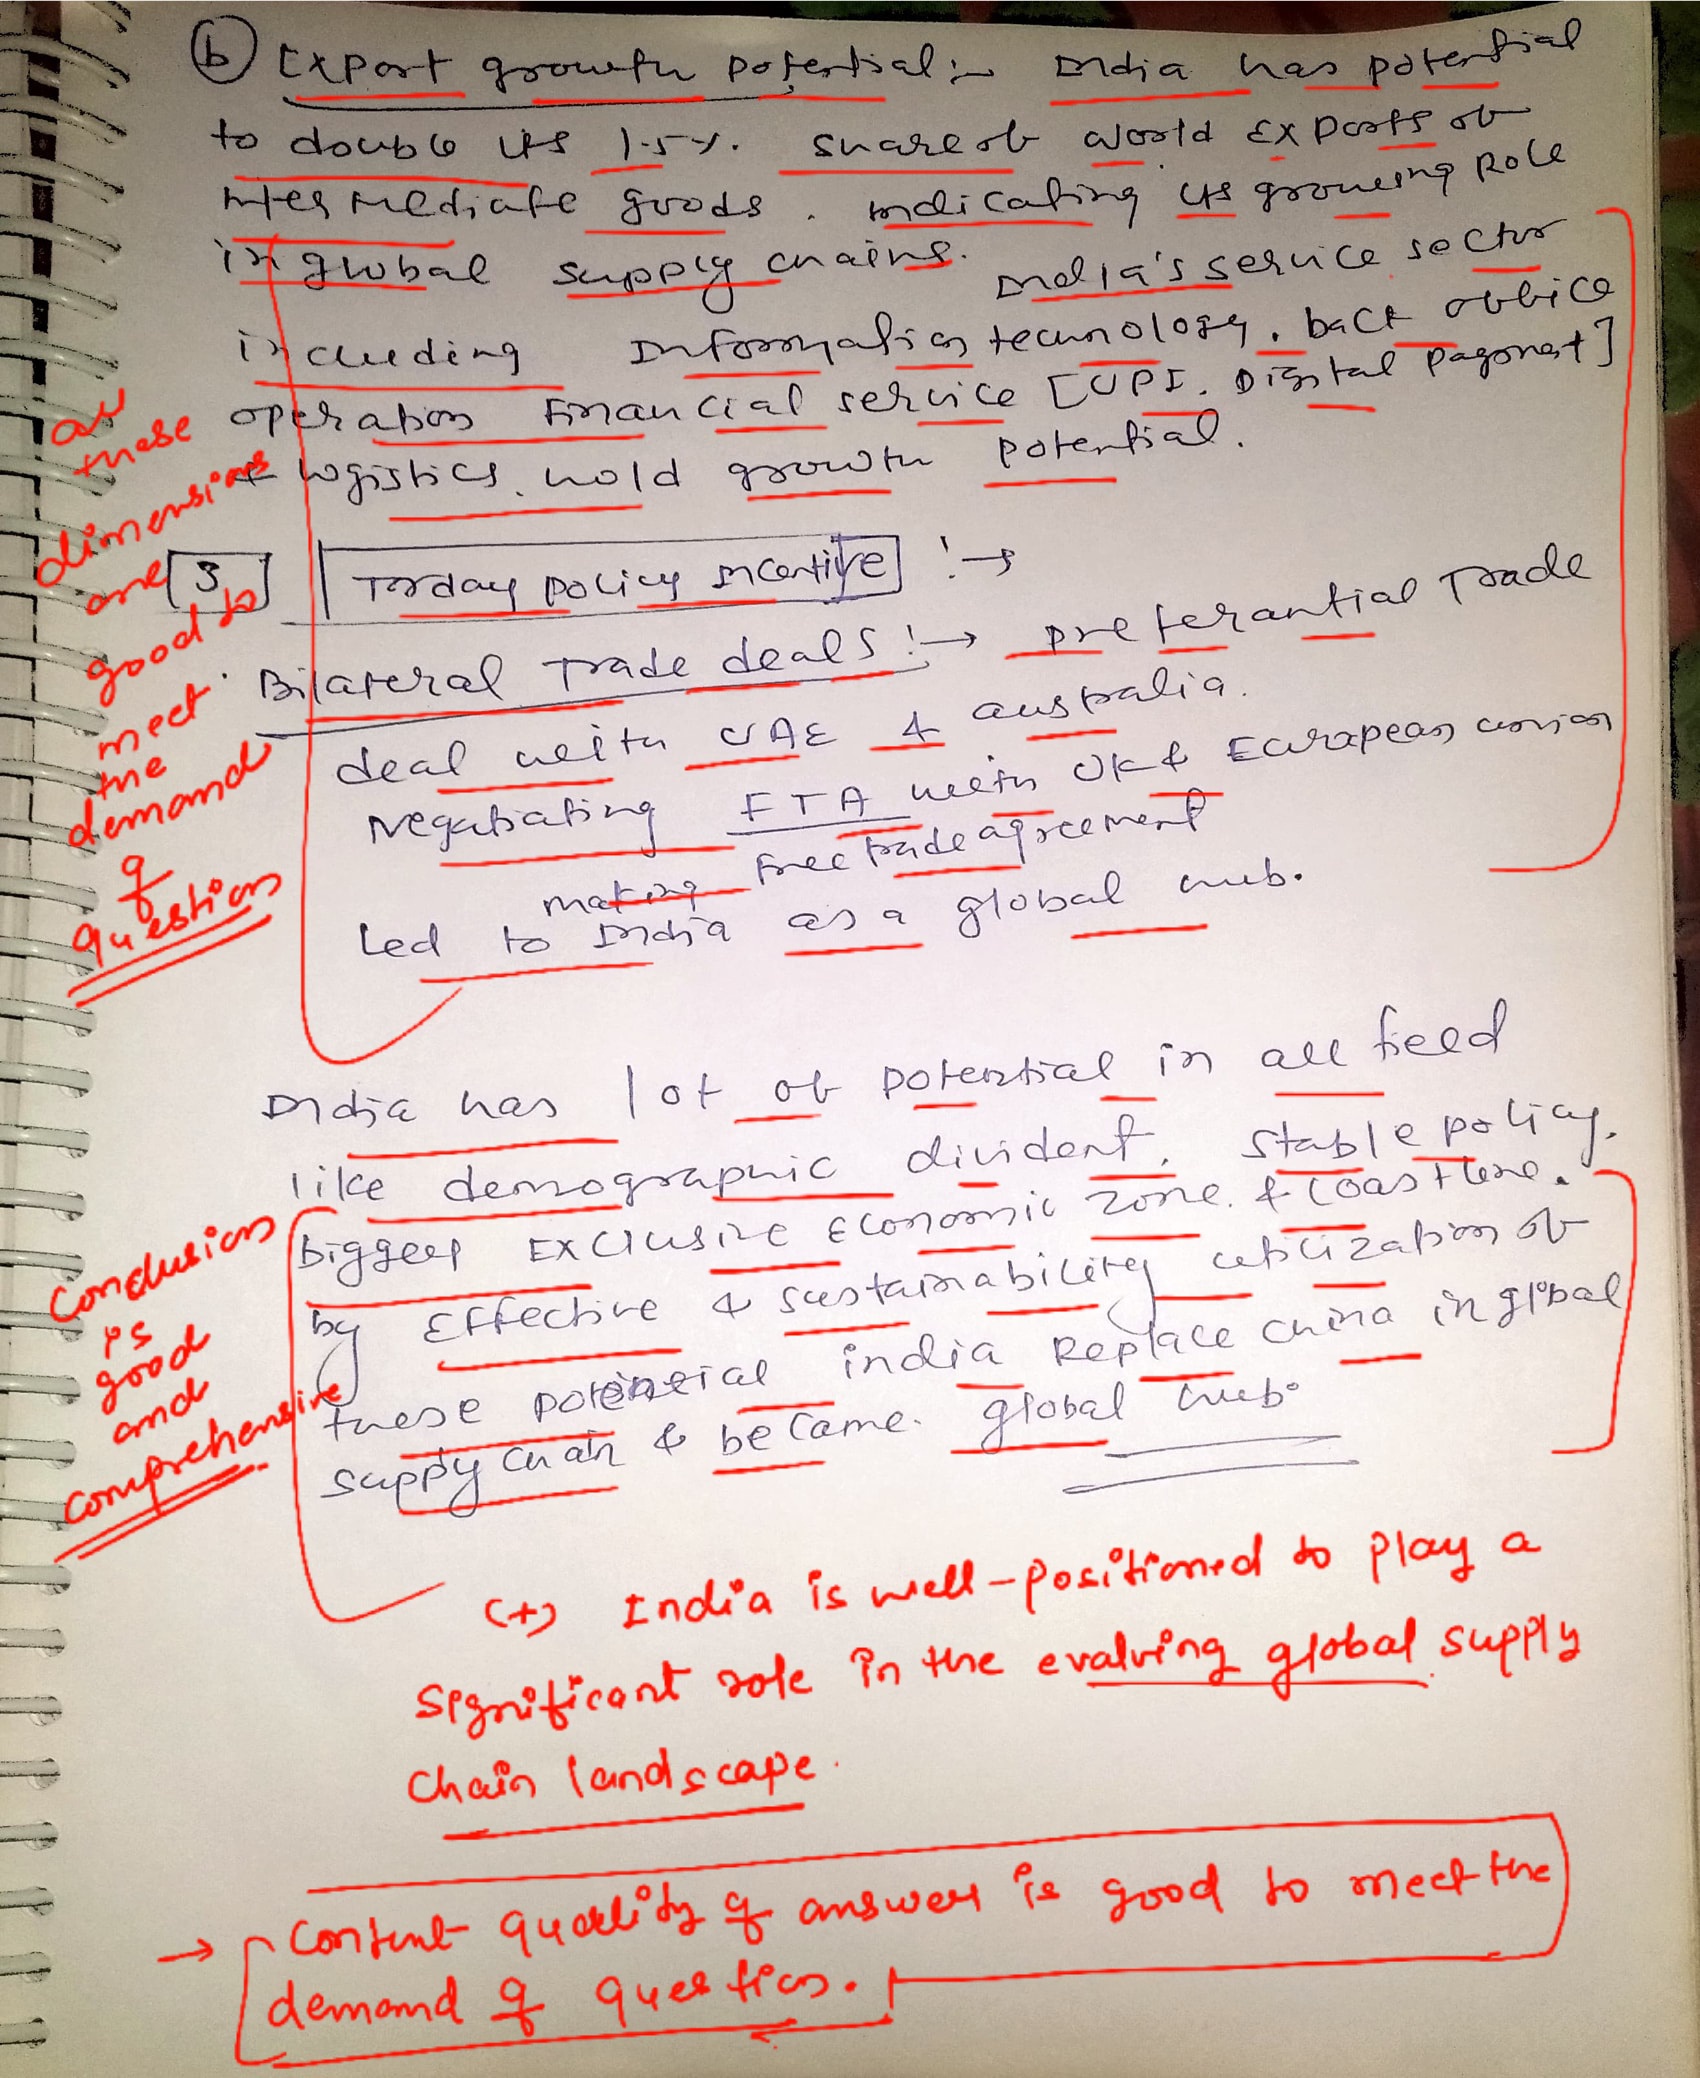 (b) Export growth potential :- India has potential
to double its 1.5%. share of world Exports of
intermediate goods. indicating its growing Role
in global supply chains.
India's service sector
including Information technology, back office
operation Financial service [UPI, Digital Payment]
& logistics, hold growth potential.
all
these
dimensions
are
good to
meet
the
demand
of
question
[3] Tarday policy Incentive :→
Bilateral Trade deals :→ preferantial Trade
deal with UAE & australia.
Negatiating FTA with UK & European union
Free trade agreement
making
Led to India as a global hub.
India has lot of potential in all field
like demographic divident, stable policy,
biggest Exclusive Economic zone. & coastline.
by Effective & sustainability utilization of
these potential india Replace china in global
supply chain & became. global hub.
Conclusion
is
good
and
comprehensive.
(+) India is well-positioned to play a
significant role in the evalving global supply
chain landscape.
→ Content quality of answer is good to meet the
demand of question.